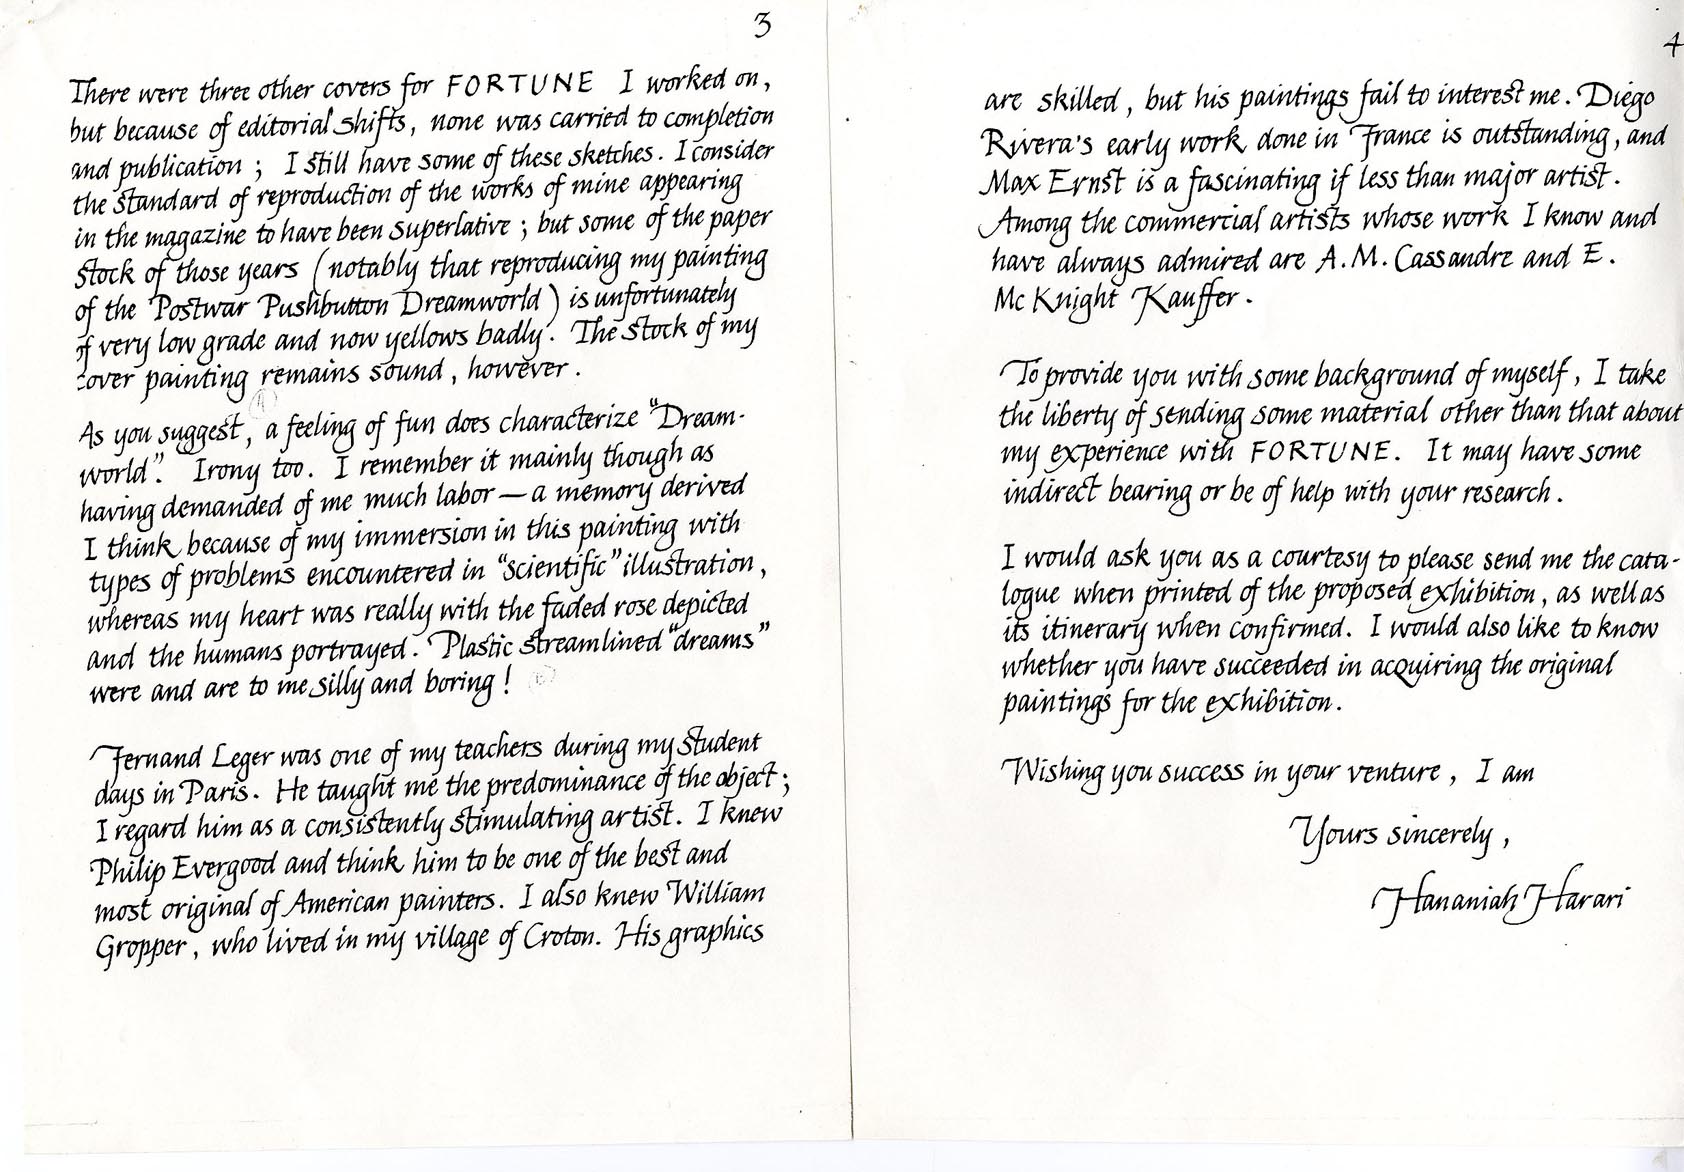 3
There were three other covers for FORTUNE I worked on,
but because of editorial shifts, none was carried to completion
and publication; I still have some of these sketches. I consider
the standard of reproduction of the works of mine appearing
in the magazine to have been superlative; but some of the paper
stock of those years (notably that reproducing my painting
of the Postwar Pushbutton Dreamworld) is unfortunately
of very low grade and now yellows badly. The stock of my
cover painting remains sound, however.
As you suggest, a feeling of fun does characterize "Dream-
world". Irony too. I remember it mainly though as
having demanded of me much labor — a memory derived
I think because of my immersion in this painting with
types of problems encountered in "scientific" illustration,
whereas my heart was really with the faded rose depicted
and the humans portrayed. Plastic streamlined "dreams"
were and are to me silly and boring!
Fernand Leger was one of my teachers during my student
days in Paris. He taught me the predominance of the object;
I regard him as a consistently stimulating artist. I knew
Philip Evergood and think him to be one of the best and
most original of American painters. I also knew William
Gropper, who lived in my village of Croton. His graphics
4
are skilled, but his paintings fail to interest me. Diego
Rivera's early work done in France is outstanding, and
Max Ernst is a fascinating if less than major artist.
Among the commercial artists whose work I know and
have always admired are A.M. Cassandre and E.
McKnight Kauffer.
To provide you with some background of myself, I take
the liberty of sending some material other than that about
my experience with FORTUNE. It may have some
indirect bearing or be of help with your research.
I would ask you as a courtesy to please send me the cata-
logue when printed of the proposed exhibition, as well as
its itinerary when confirmed. I would also like to know
whether you have succeeded in acquiring the original
paintings for the exhibition.
Wishing you success in your venture, I am
Yours sincerely,
Hananiah Harari